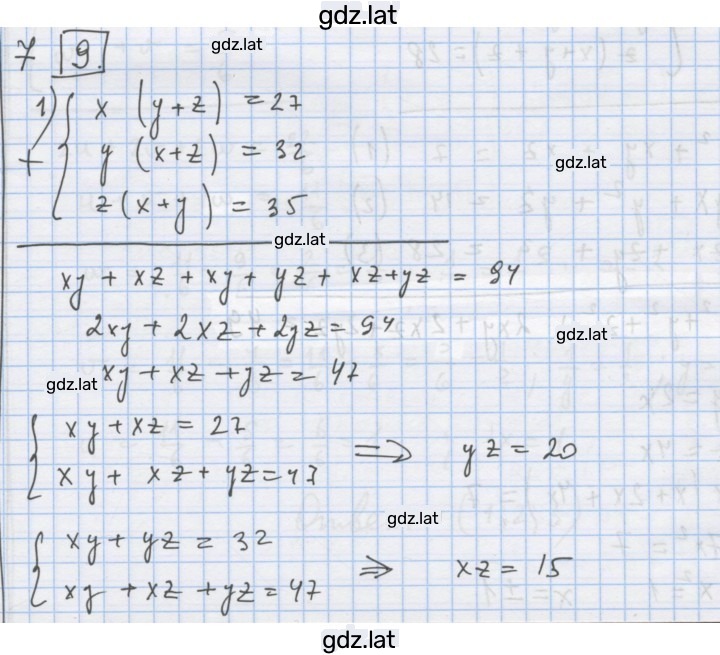 gdz.lat
7 9.
gdz.lat
1) x (y+z) = 27
+ y (x+z) = 32
gdz.lat
z (x+y) = 35
gdz.lat
xy + xz + xy + yz + xz + yz = 94
2xy + 2xz + 2yz = 94
gdz.lat
xy + xz + yz = 47
gdz.lat
xy + xz = 27
xy + xz + yz = 47 ⇒ yz = 20
gdz.lat
xy + yz = 32
xy + xz + yz = 47 ⇒ xz = 15
gdz.lat